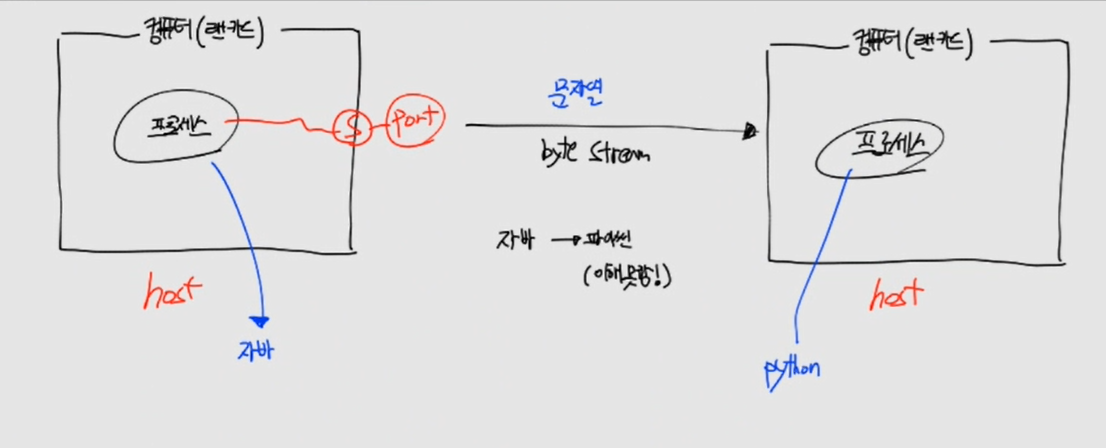 컴퓨터(랜카드)
프로세스
S
port
host
자바
문자열
byte stream
자바 → 파이썬
(이해못함!)
컴퓨터(랜카드)
프로세스
host
python